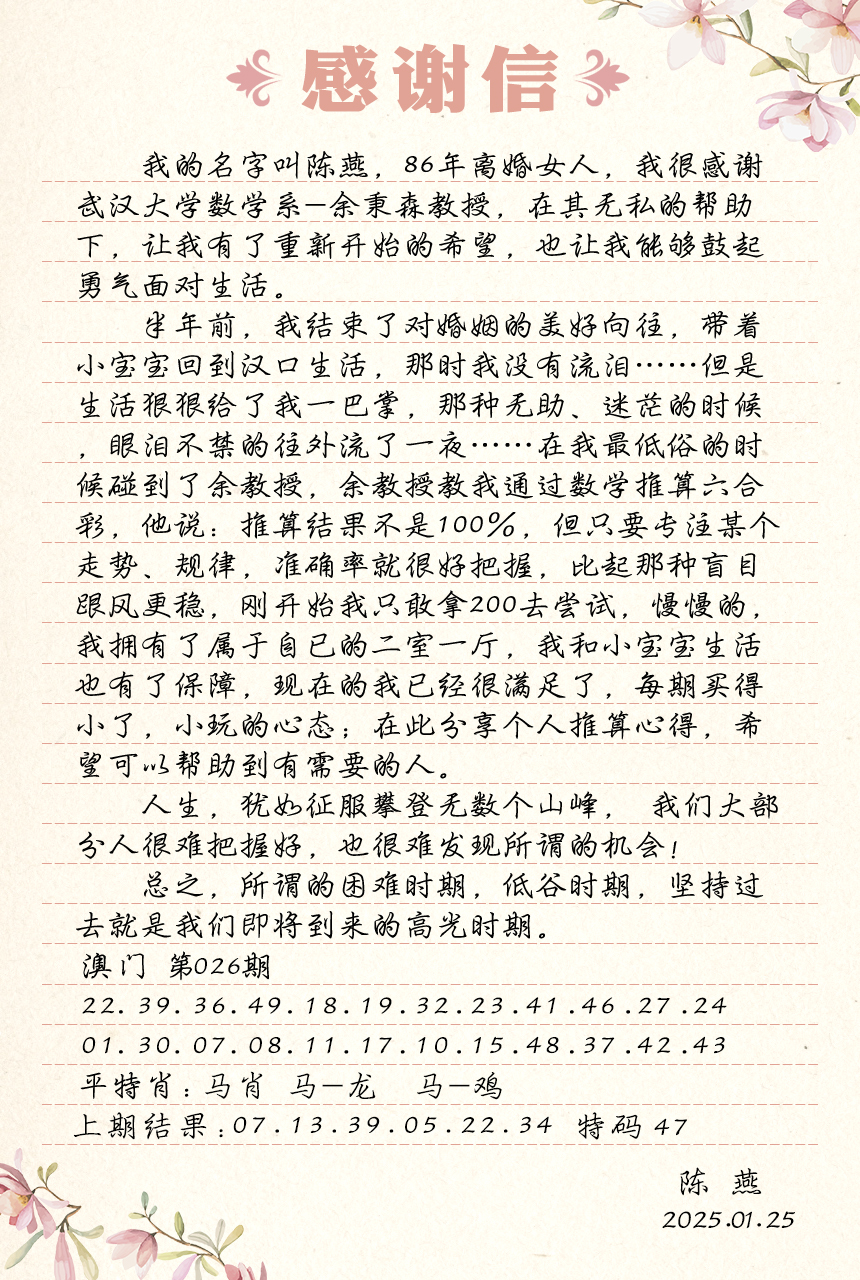 感谢信
我的名字叫陈燕，86年离婚女人，我很感谢
武汉大学数学系—余秉森教授，在其无私的帮助
下，让我有了重新开始的希望，也让我能够鼓起
勇气面对生活。
半年前，我结束了对婚姻的美好向往，带着
小宝宝回到汉口生活，那时我没有流泪……但是
生活狠狠给了我一巴掌，那种无助、迷茫的时候
，眼泪不禁的往外流了一夜……在我最低俗的时
候碰到了余教授，余教授教我通过数学推算六合
彩，他说：推算结果不是100%，但只要专注某个
走势、规律，准确率就很好把握，比起那种盲目
跟风更稳，刚开始我只敢拿200去尝试，慢慢的，
我拥有了属于自已的二室一厅，我和小宝宝生活
也有了保障，现在的我已经很满足了，每期买得
小了，小玩的心态；在此分享个人推算心得，希
望可以帮助到有需要的人。
人生，犹如征服攀登无数个山峰， 我们大部
分人很难把握好，也很难发现所谓的机会！
总之，所谓的困难时期，低谷时期，坚持过
去就是我们即将到来的高光时期。
澳门 第026期
22.39.36.49.18.19.32.23.41.46.27.24
01.30.07.08.11.17.10.15.48.37.42.43
平特肖：马肖 马—龙 马—鸡
上期结果：07.13.39.05.22.34 特码 47
陈 燕
2025.01.25